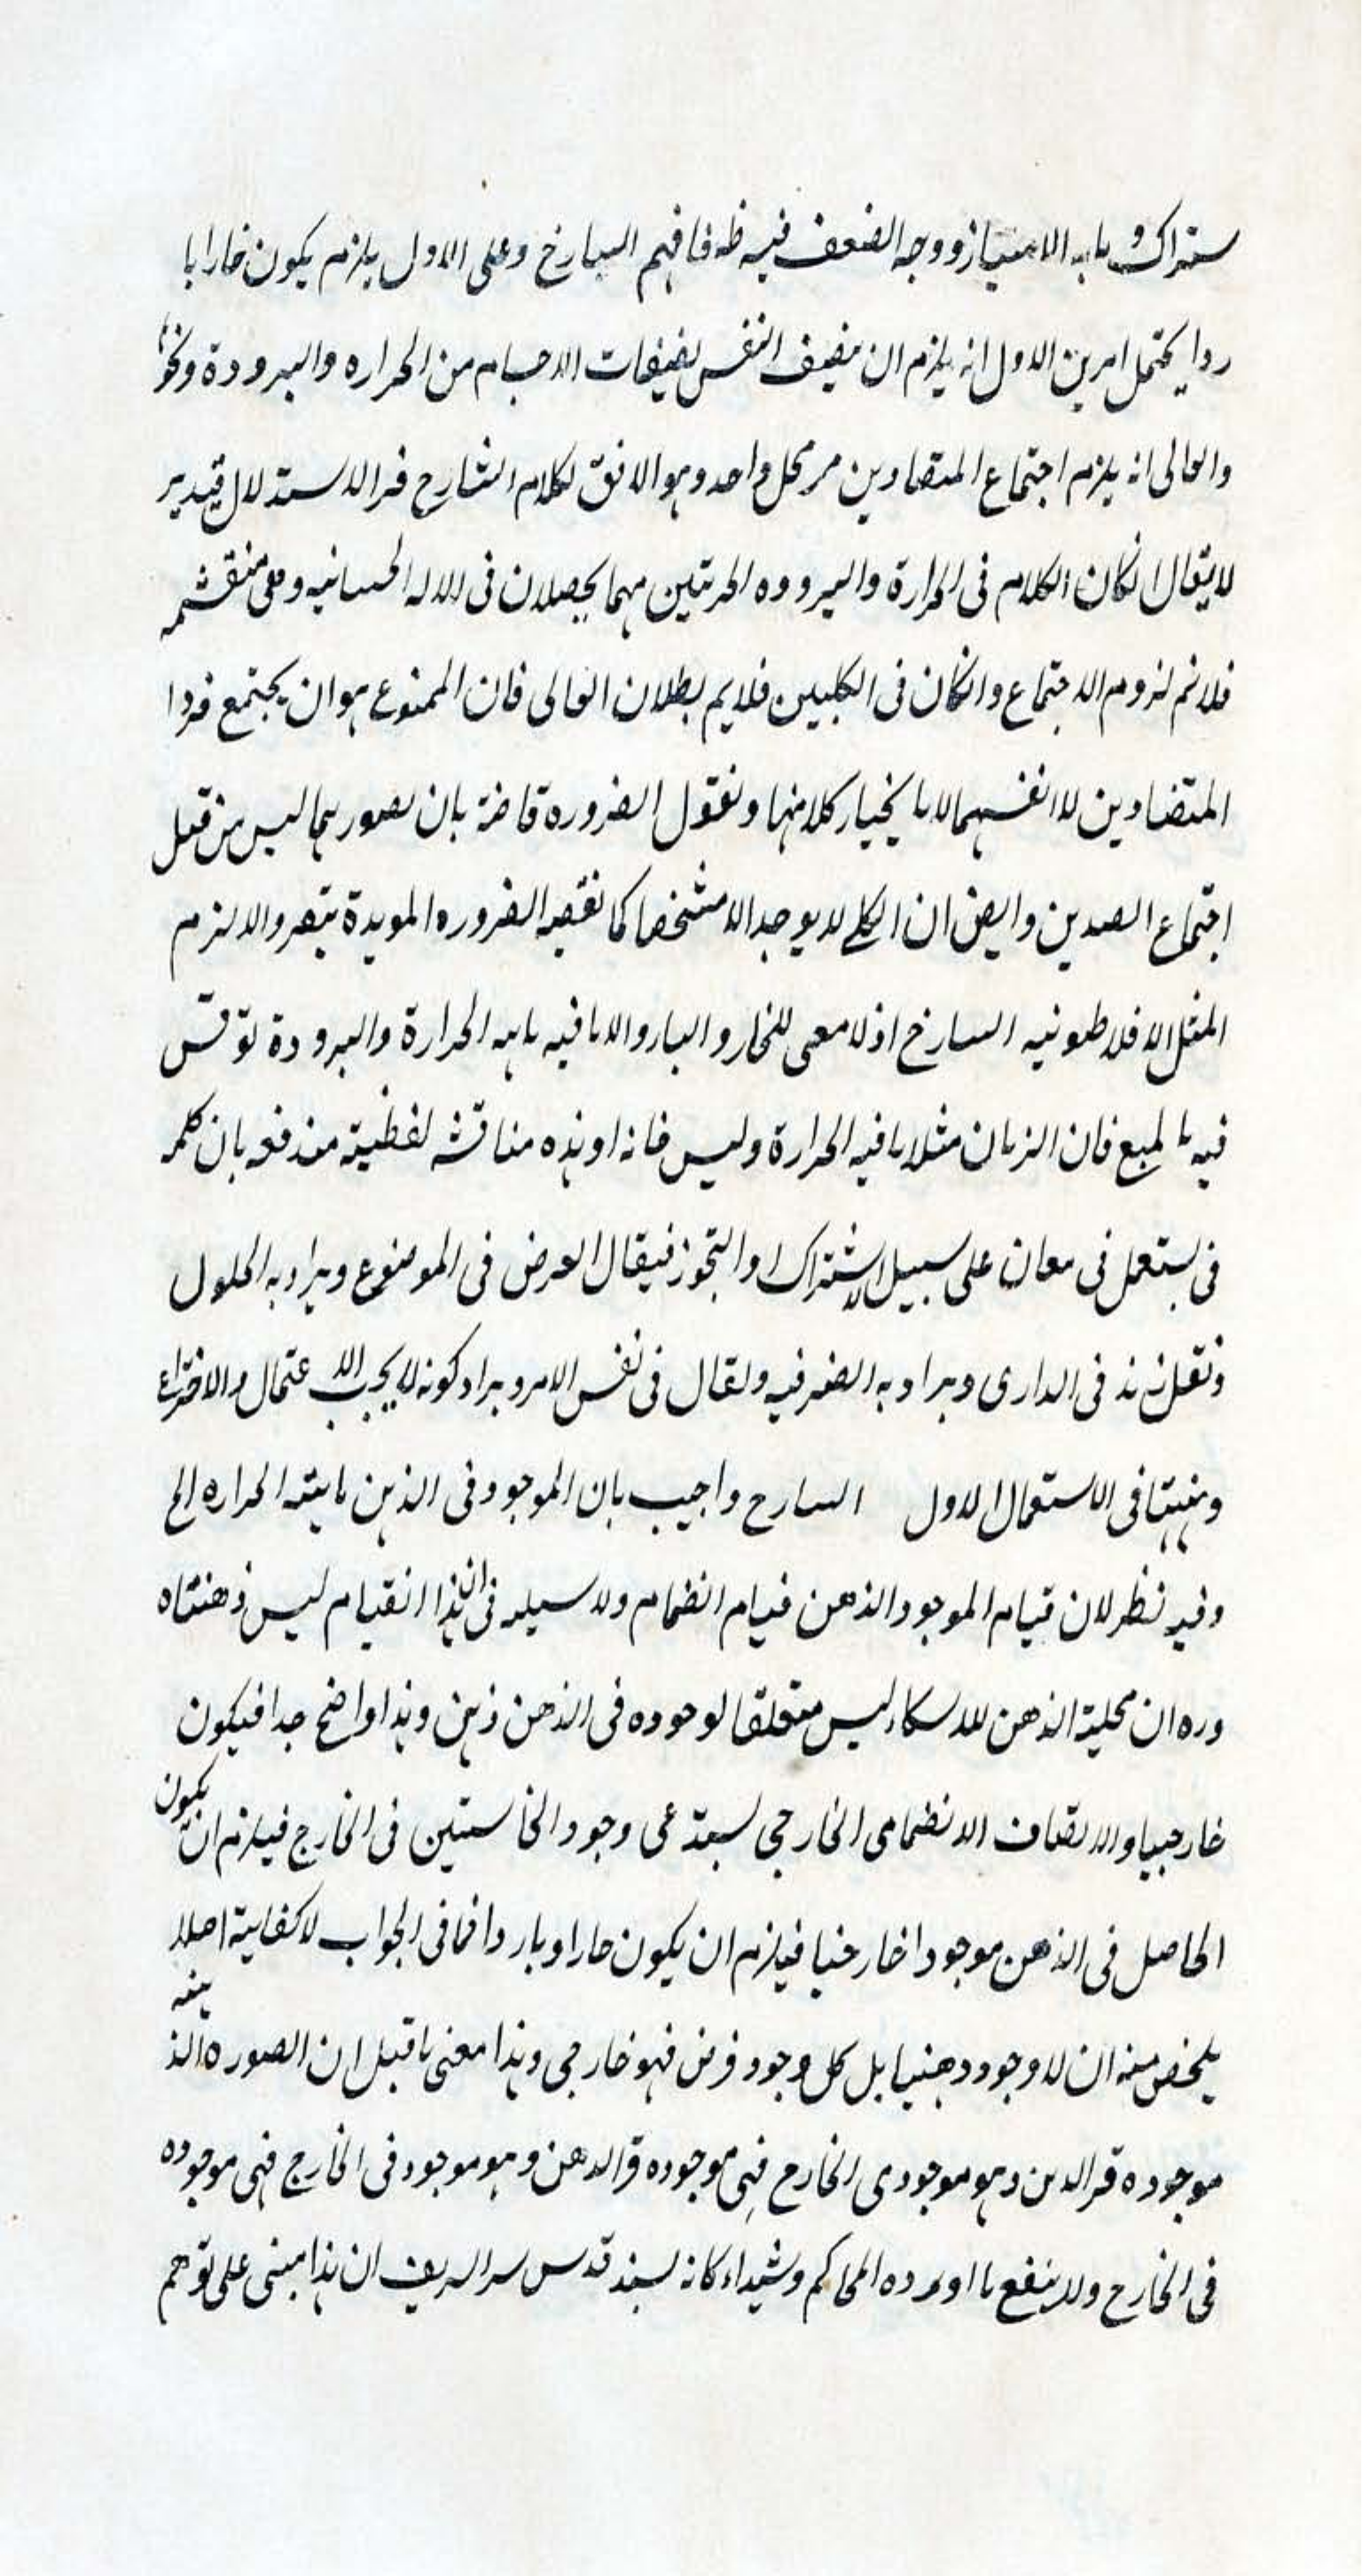 ستراك و ما به الامتياز و وجه الضعف فيه ظه فافهم السارخ وعلى الاول يلزم يكون خارا با
ردا يحتمل امرين الاول انه يلزم ان يضيف النفس بضيفات الاجسام من الحراره والبرودة ونحو
والعالى انه يلزم اجتماع المتضادين مر محل واحد وهو الافق لكلام الشارح فر الاستدلال قيدير
لا يقال انكان الكلام فى الحرارة والبروده الحرتين مهما يحصلان فى الاله الحسانيه وهى منقشمه
فلا نم لزوم الاجتماع وانكان فى الكليين فلايم بطلان العالى فان الممنوع هو ان يجتمع فردا
المتضادين لا انفسهما لانا نختار كلا منها ونقول الضروره قاضة بان تصورهما ليس من قبل
اجتماع الصدين وايض ان الكلى لا يوجد الا مشخصا كما نقصه الضروره المويدة بتصر والا لزم
المثل الافلاطونيه السارخ اذ لا معى للحار و البارد الا ما فيه ماهيه الحرارة والبرودة نوقش
فيه بالمبع فان الزمان مثلا ما فيه الحرارة وليس فانه او هذه مناقشه لفظية مندفعه بان كلمه
فى يستعمل فى معان على سبيل الاشتراك او التجوز فيقال العرض فى الموضوع ويراد به الحلول
ونقل زيد فى الدارى ويراد به الضرفيه ولقال فى نفس الامر ويراد كونه لا يجب الا عتمال والاختراع
وههنا فى الاستعمال الاول السارح واجيب بان الموجود فى الذهن ماهيته الحراره الخ
وفيه نظر لان قيام الموجود الذهن قيام انضمام ولا سيله فى ان هذا القيام ليس ذهنتاه
وره ان محلية الذهن للاسكاء ليس متعلقا لوجوده فى الذهن ذهن وهذا واضح جدا فيكون
خارجيا والاتصاف الانضمامى الخارجى لسبتدعى وجود الخاستين فى الخارج فيلزم ان يكون
الحاصل فى الذهن موجودا خارجيا فيلزم ان يكون حارا وباردا فما فى الجواب لا كفاية اصلا
يلخص منه ان لا وجود دهنيا بل كل وجود فرض فهو خارجى وهذا معنى ما قيل ان الصوره الذهنيه
موجوده قر الدهن وهو موجود فى الخارج فهى موجوده قر الدهن وهو موجود فى الخارج فهى موجوده
فى الخارج ولا ينفع ما اورده المحاكم وشيداءكانه لسيد قدس سر الشريف ان هذا مبنى على توهم